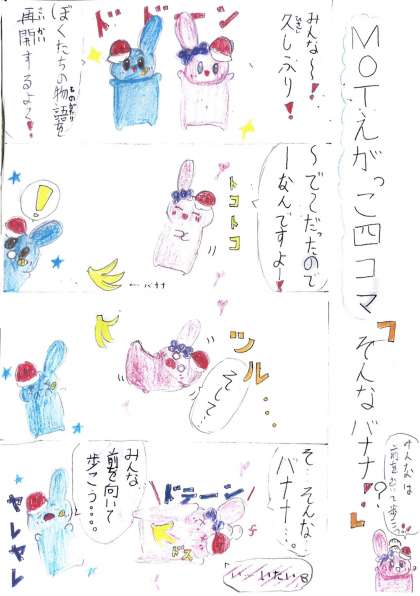 MOTえがっこ四コマ
「そんなバナナ!?」
みんなは
みんな〜!
久しぶり!
ドドドーン
ぼくたちの物語を
ものがたり
再開するよ!
さいかい
〜でこだったので
ーなんですよー!
トコトコ
!
←バナナ
ツル…
そして…
そ…そんな
バナナ…。
ドテーン
ドス
い…いたい
みんな
前を向いて
歩こう…。
ヤレヤレ